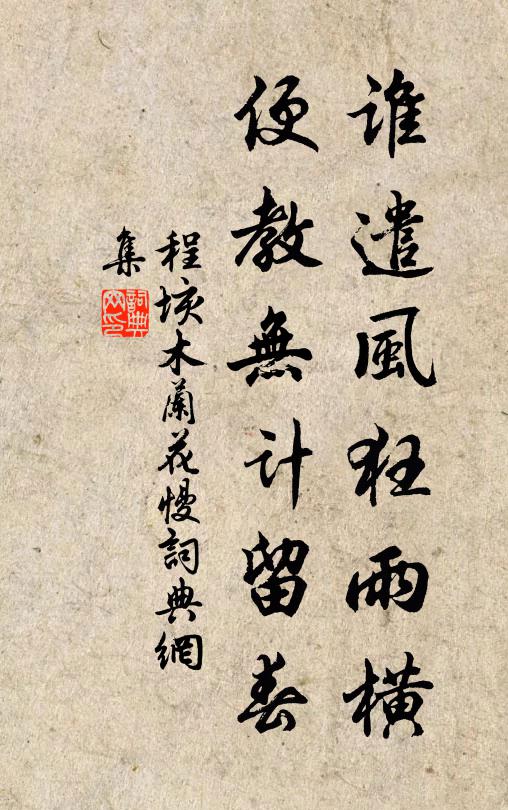 誰遣風狂雨橫
便教無計留春
程垓木蘭花慢詞典網
集
詞典
网印